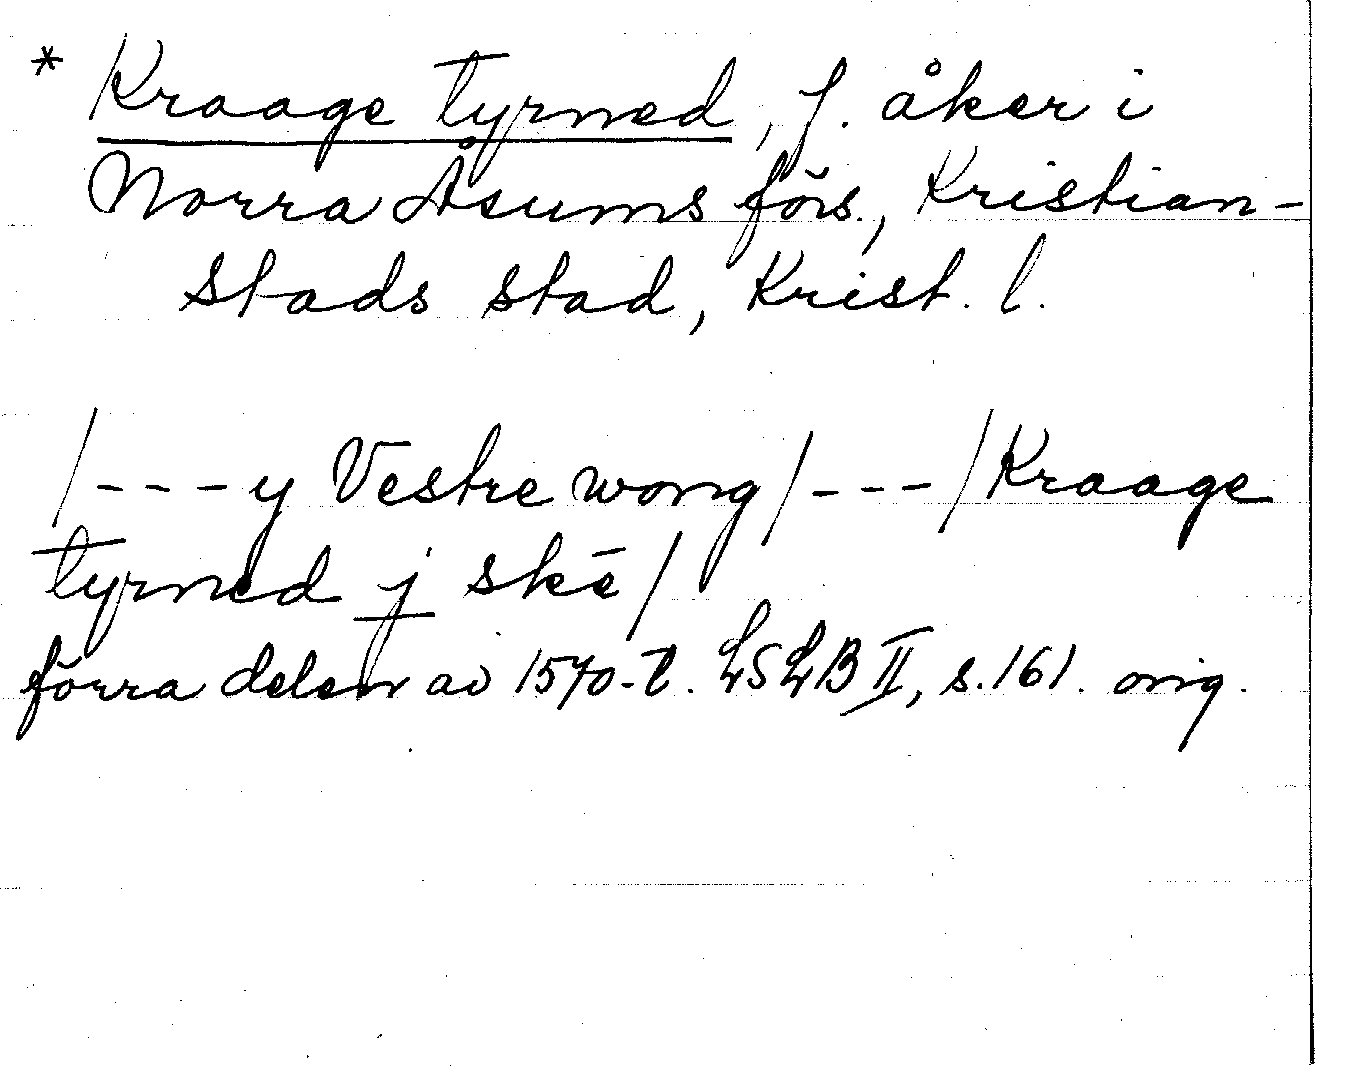 * Kraage tyrned, f. åker i
Norra Åsums förs., Kristian-
stads stad, Krist. l.
/---y Vestre wong/---/Kraage
tyrned j skē/
förra delen av 1570-t. LSLB II, s. 161. orig.